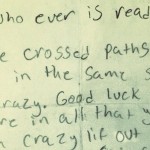 who ever is read
e crossed paths
in the same s
crazy. Good luck
re in all that y
n crazy lif out